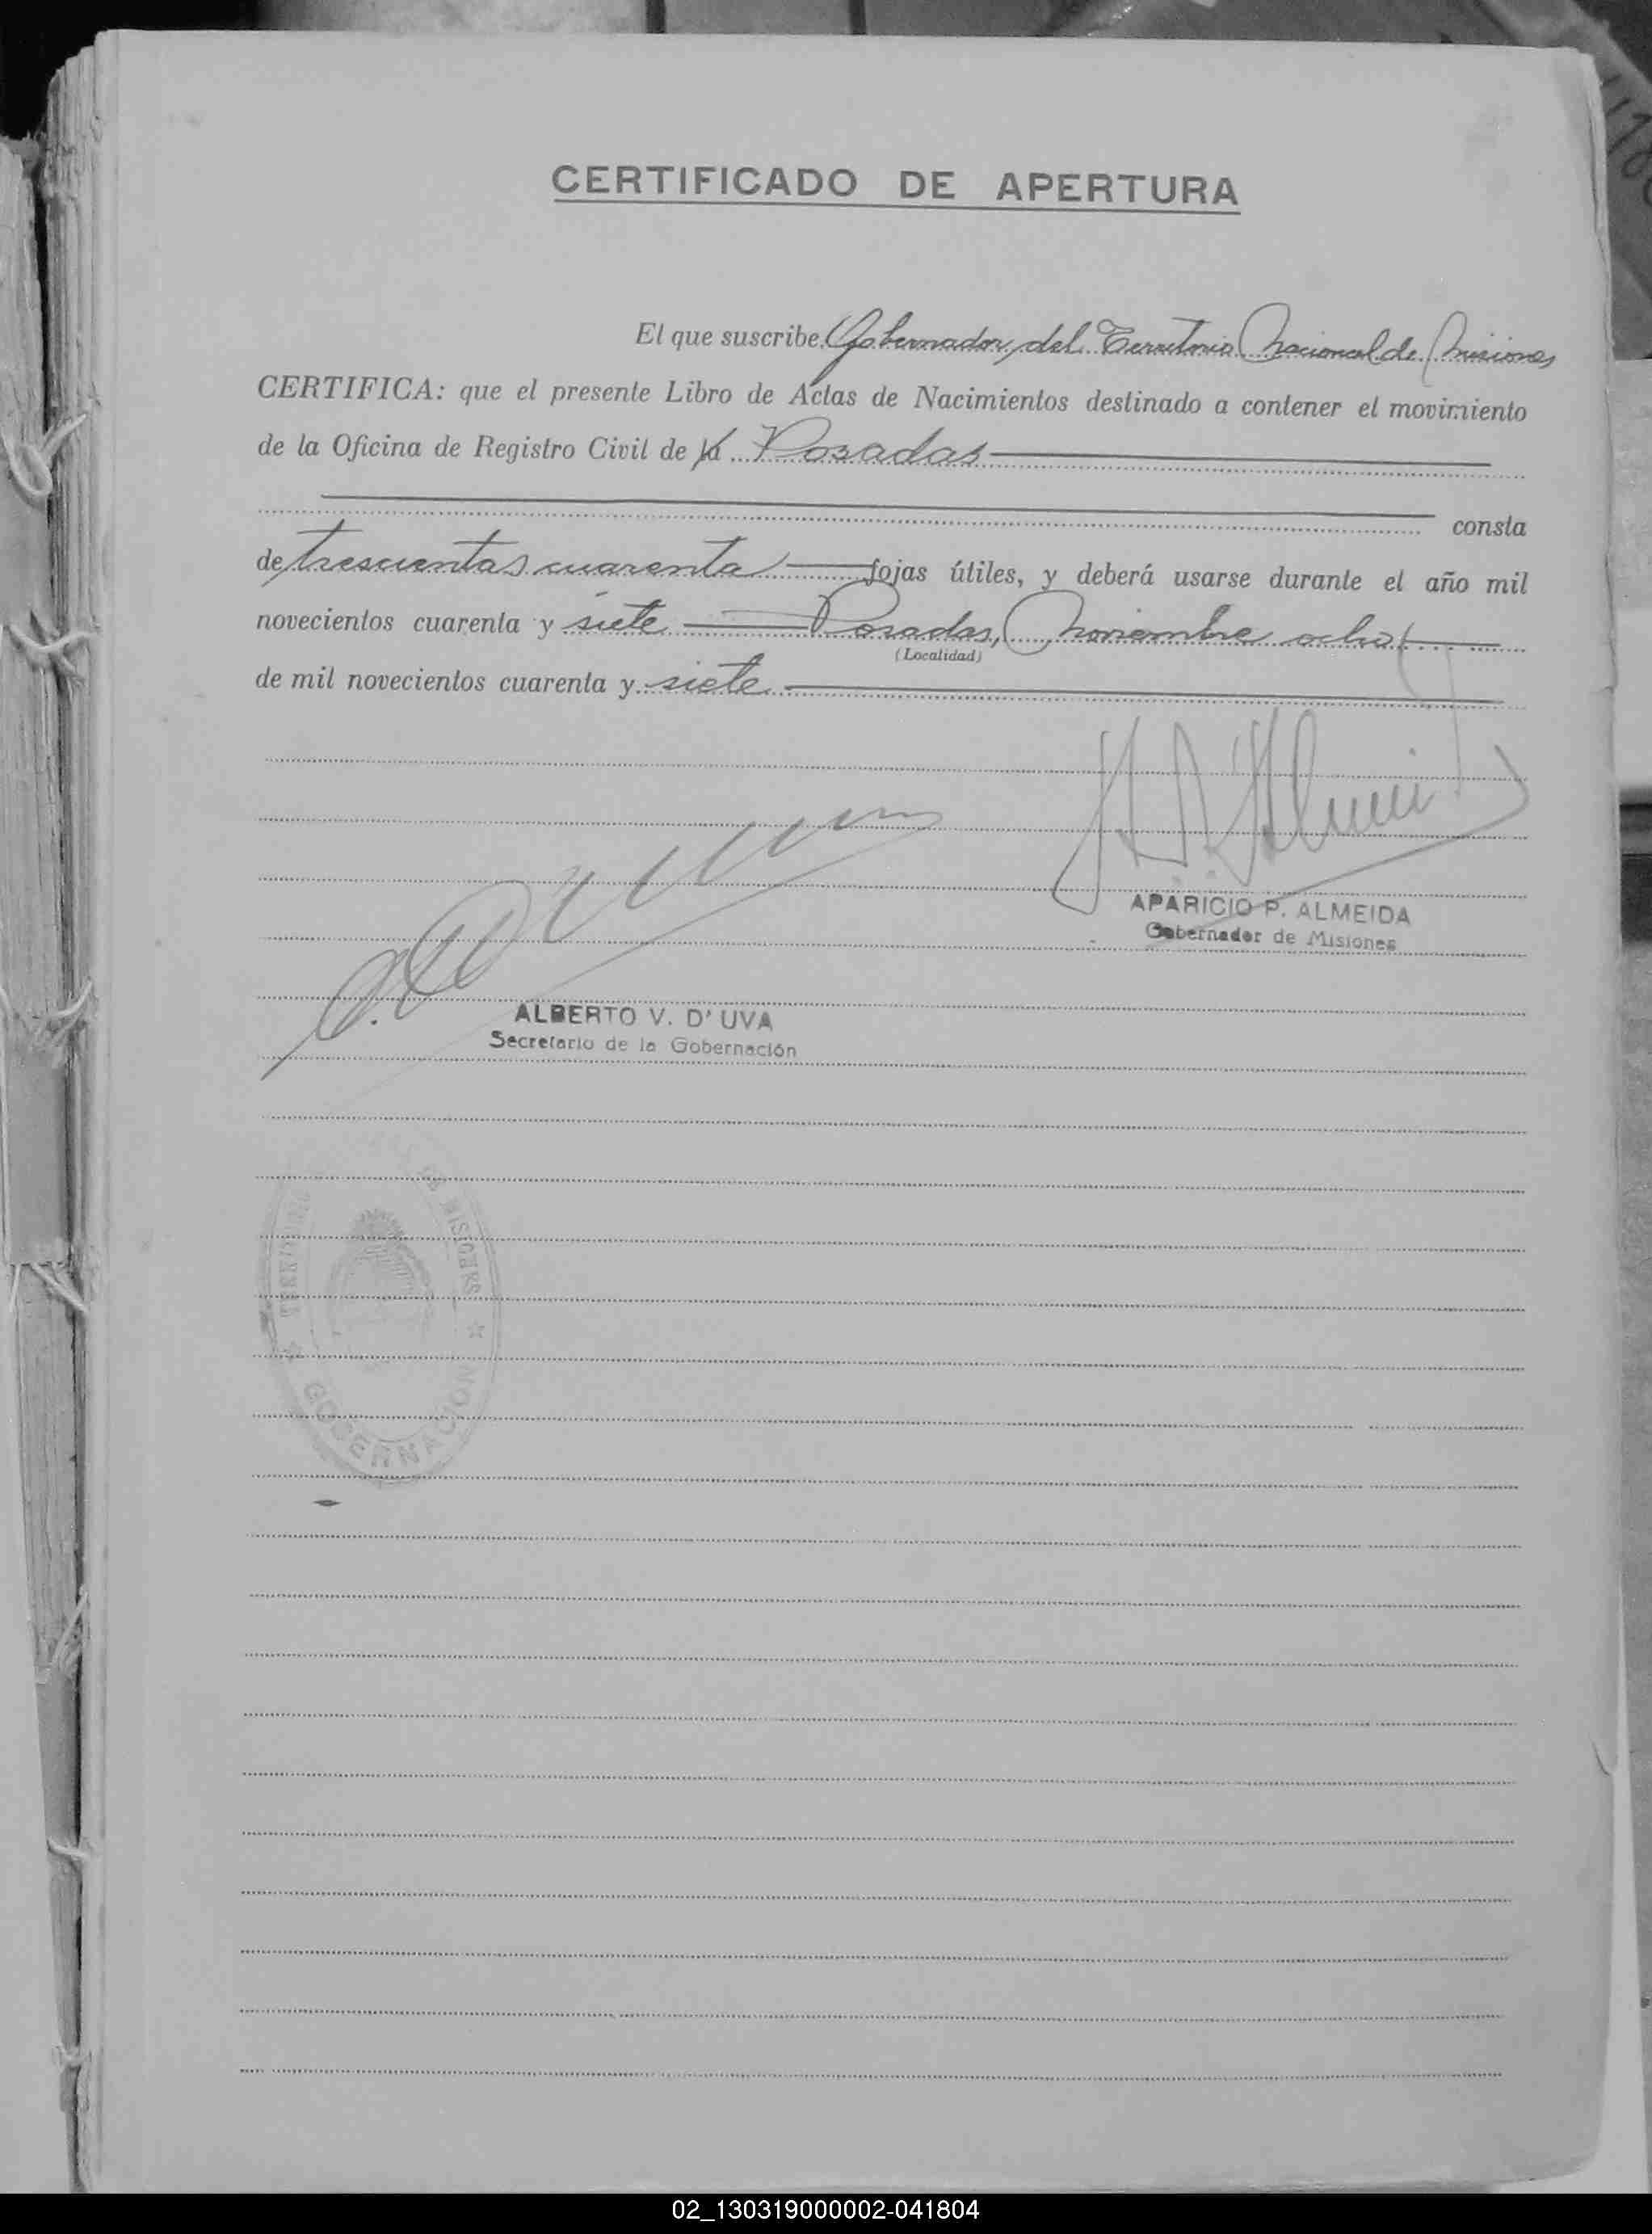 CERTIFICADO DE APERTURA
El que suscribe Gobernador del Territorio Nacional de Misiones
CERTIFICA: que el presente Libro de Actas de Nacimientos destinado a contener el movimiento
de la Oficina de Registro Civil de la Posadas
consta
de trescientas cuarenta fojas útiles, y deberá usarse durante el año mil
novecientos cuarenta y siete Posadas, Noviembre ocho
(Localidad)
de mil novecientos cuarenta y siete
APARICIO P. ALMEIDA
Gobernador de Misiones
ALBERTO V. D' UVA
Secretario de la Gobernación
MISIONES
GOBERNACION
02_130319000002-041804